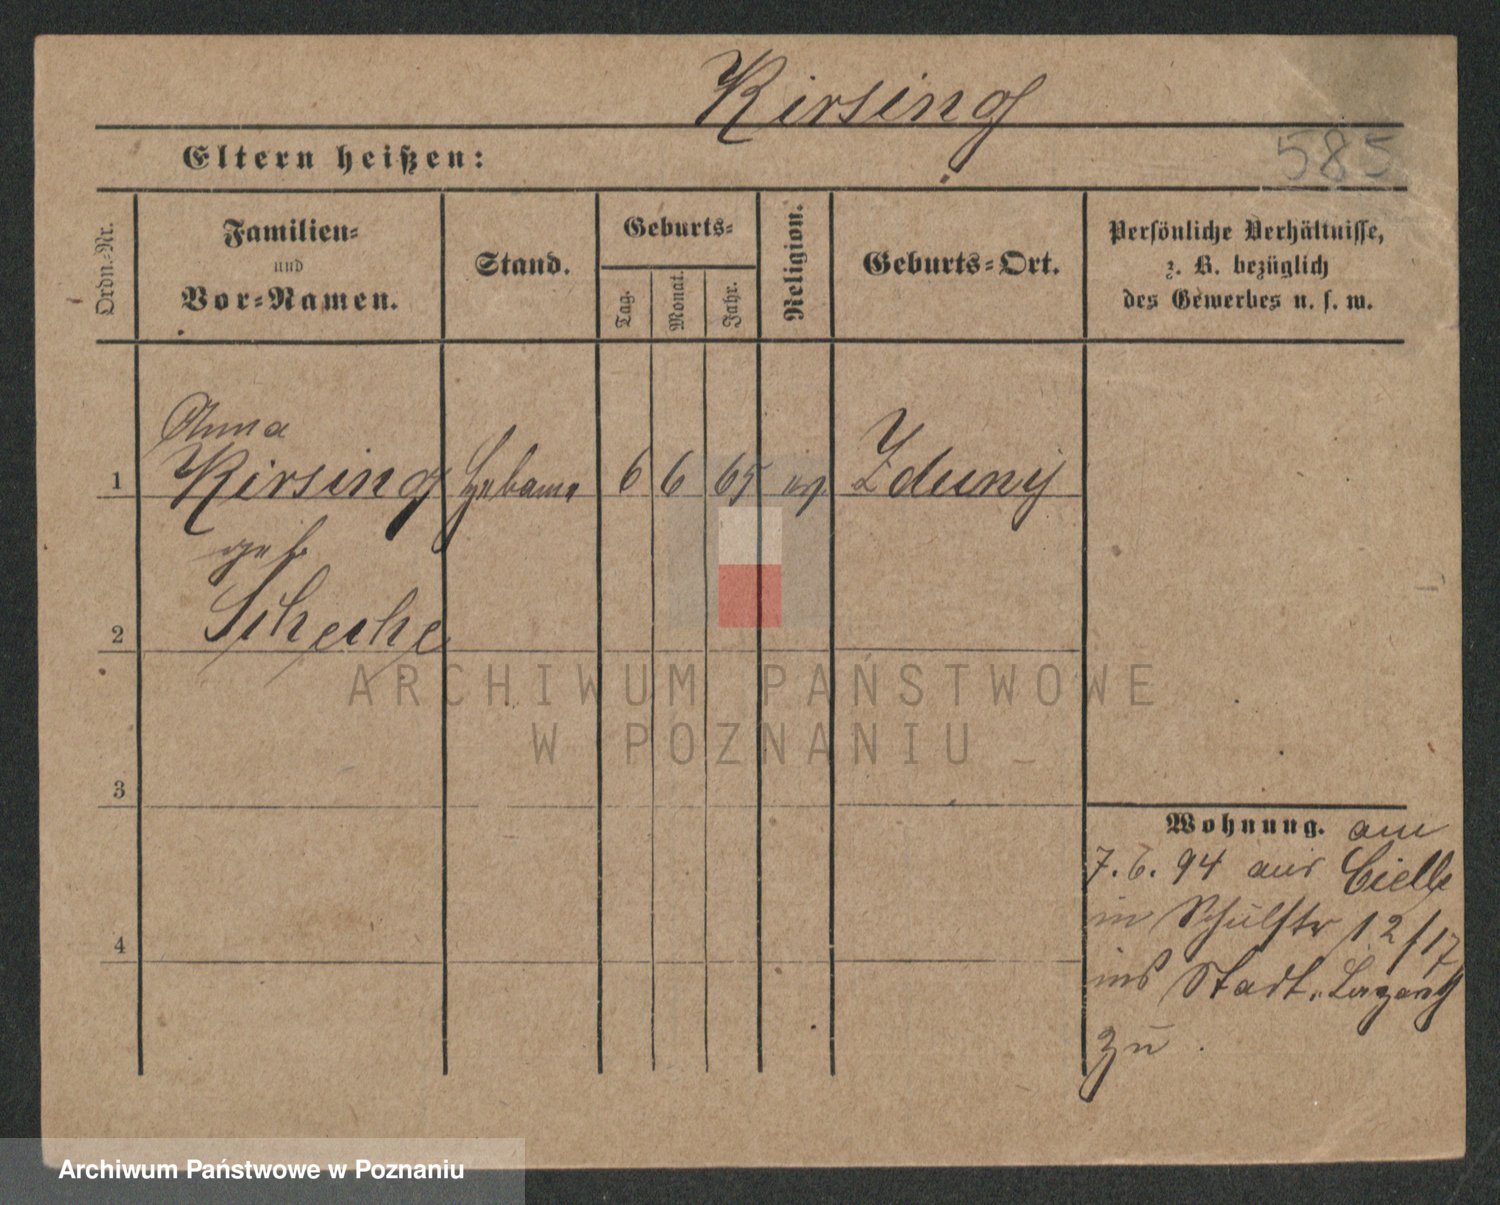 Kirsing
585
Eltern heißen:
Ordn.-Nr.
Familien-
und
Vor-Namen.
Stand.
Geburts-
Tag.
Monat.
Jahr.
Religion.
Geburts-Ort.
Persönliche Verhältnisse,
z. B. bezüglich
des Gewerbes u. s. w.
Anna
1 Kirsing Hebame 6 6 65 ev Zduny
geb
2 Scheche
3
4
Wohnung. am
7. 6. 94 aus
in Schulstr 12/17
ins Stadt-Lazareth
zu.
ARCHIWUM PAŃSTWOWE
W POZNANIU
Archiwum Państwowe w Poznaniu